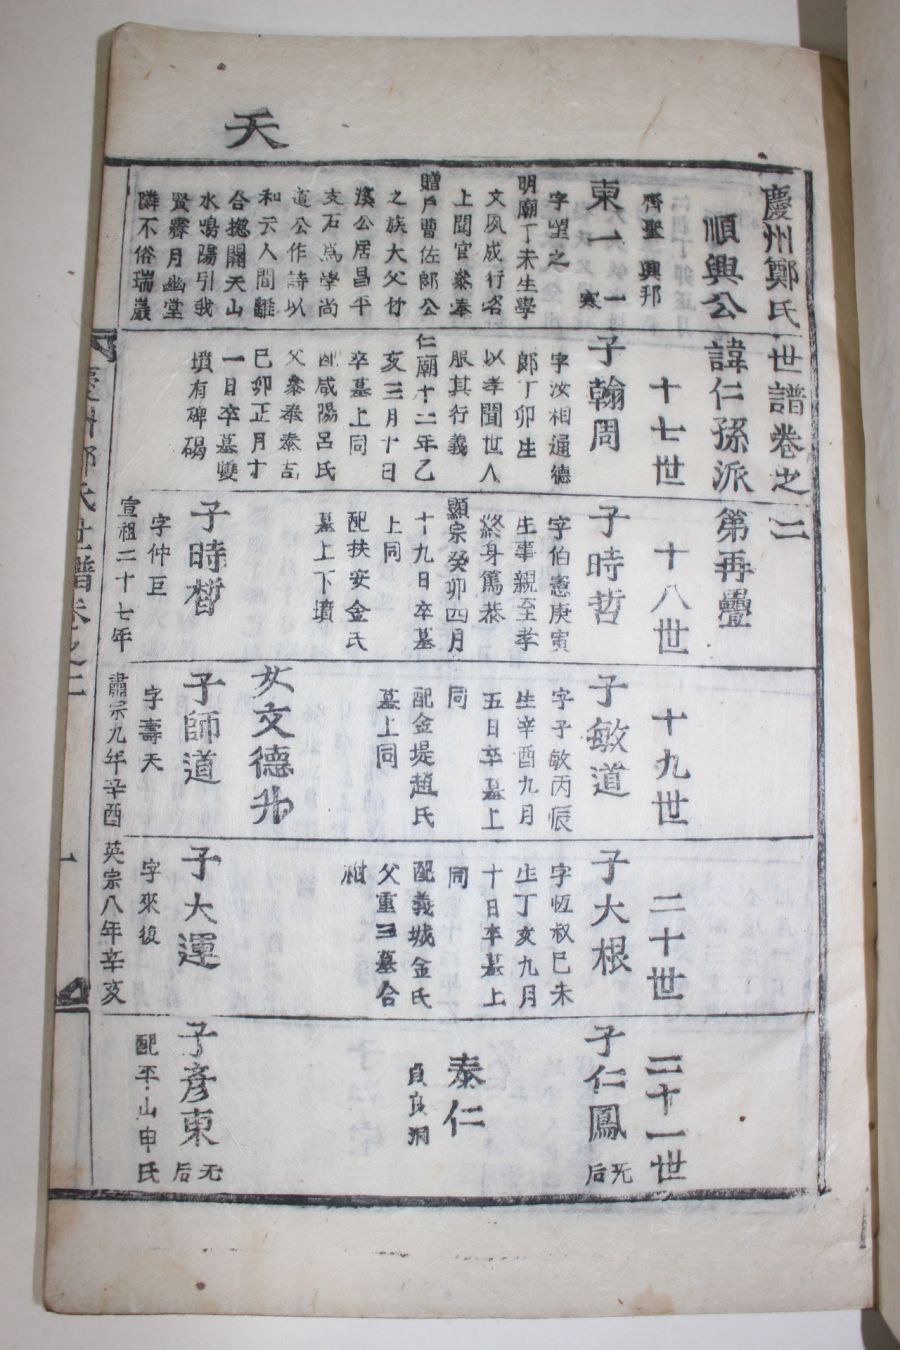 天
慶州鄭氏世譜卷之二
順興公諱仁孫派 第再疊
齊聖 興邦
東一 一寒
字望之
明廟丁未生學
文夙成行名
上聞官參奉
贈戶曹佐郎公
之族大父竹
溪公居昌平
支石爲學尚
道公作詩以
和云人間離
合摠關天山
水鳴陽引我
賢霽月幽堂
隣不俗瑞巖
十七世
子翰周
字汝相通德
郎丁卯生
以孝聞世人
服其行義
仁廟十二年乙
亥三月十日
卒墓上同
配咸陽呂氏
父參奉泰吉
己卯正月十
一日卒墓雙
墳有碑碣
十八世
子時哲
字伯憲庚寅
生事親至孝
終身篤恭
顯宗癸卯四月
十九日卒墓
上同
配扶安金氏
墓上下墳
子時晳
字仲巨
宣祖二十七年
十九世
子敏道
字子敏丙辰
生辛酉九月
五日卒墓上
同
配金堤趙氏
墓上同
女文德弁
子師道
字壽天
肅宗九年辛酉
二十世
子大根
字恆叔己未
生丁亥九月
十日卒墓上
同
配義城金氏
父重三墓合
祔
子大運
字來後
英宗八年辛亥
二十一世
子仁鳳 无后
泰仁
貞良洞
子彥東 无后
配平山申氏
慶州鄭氏世譜卷之二
一